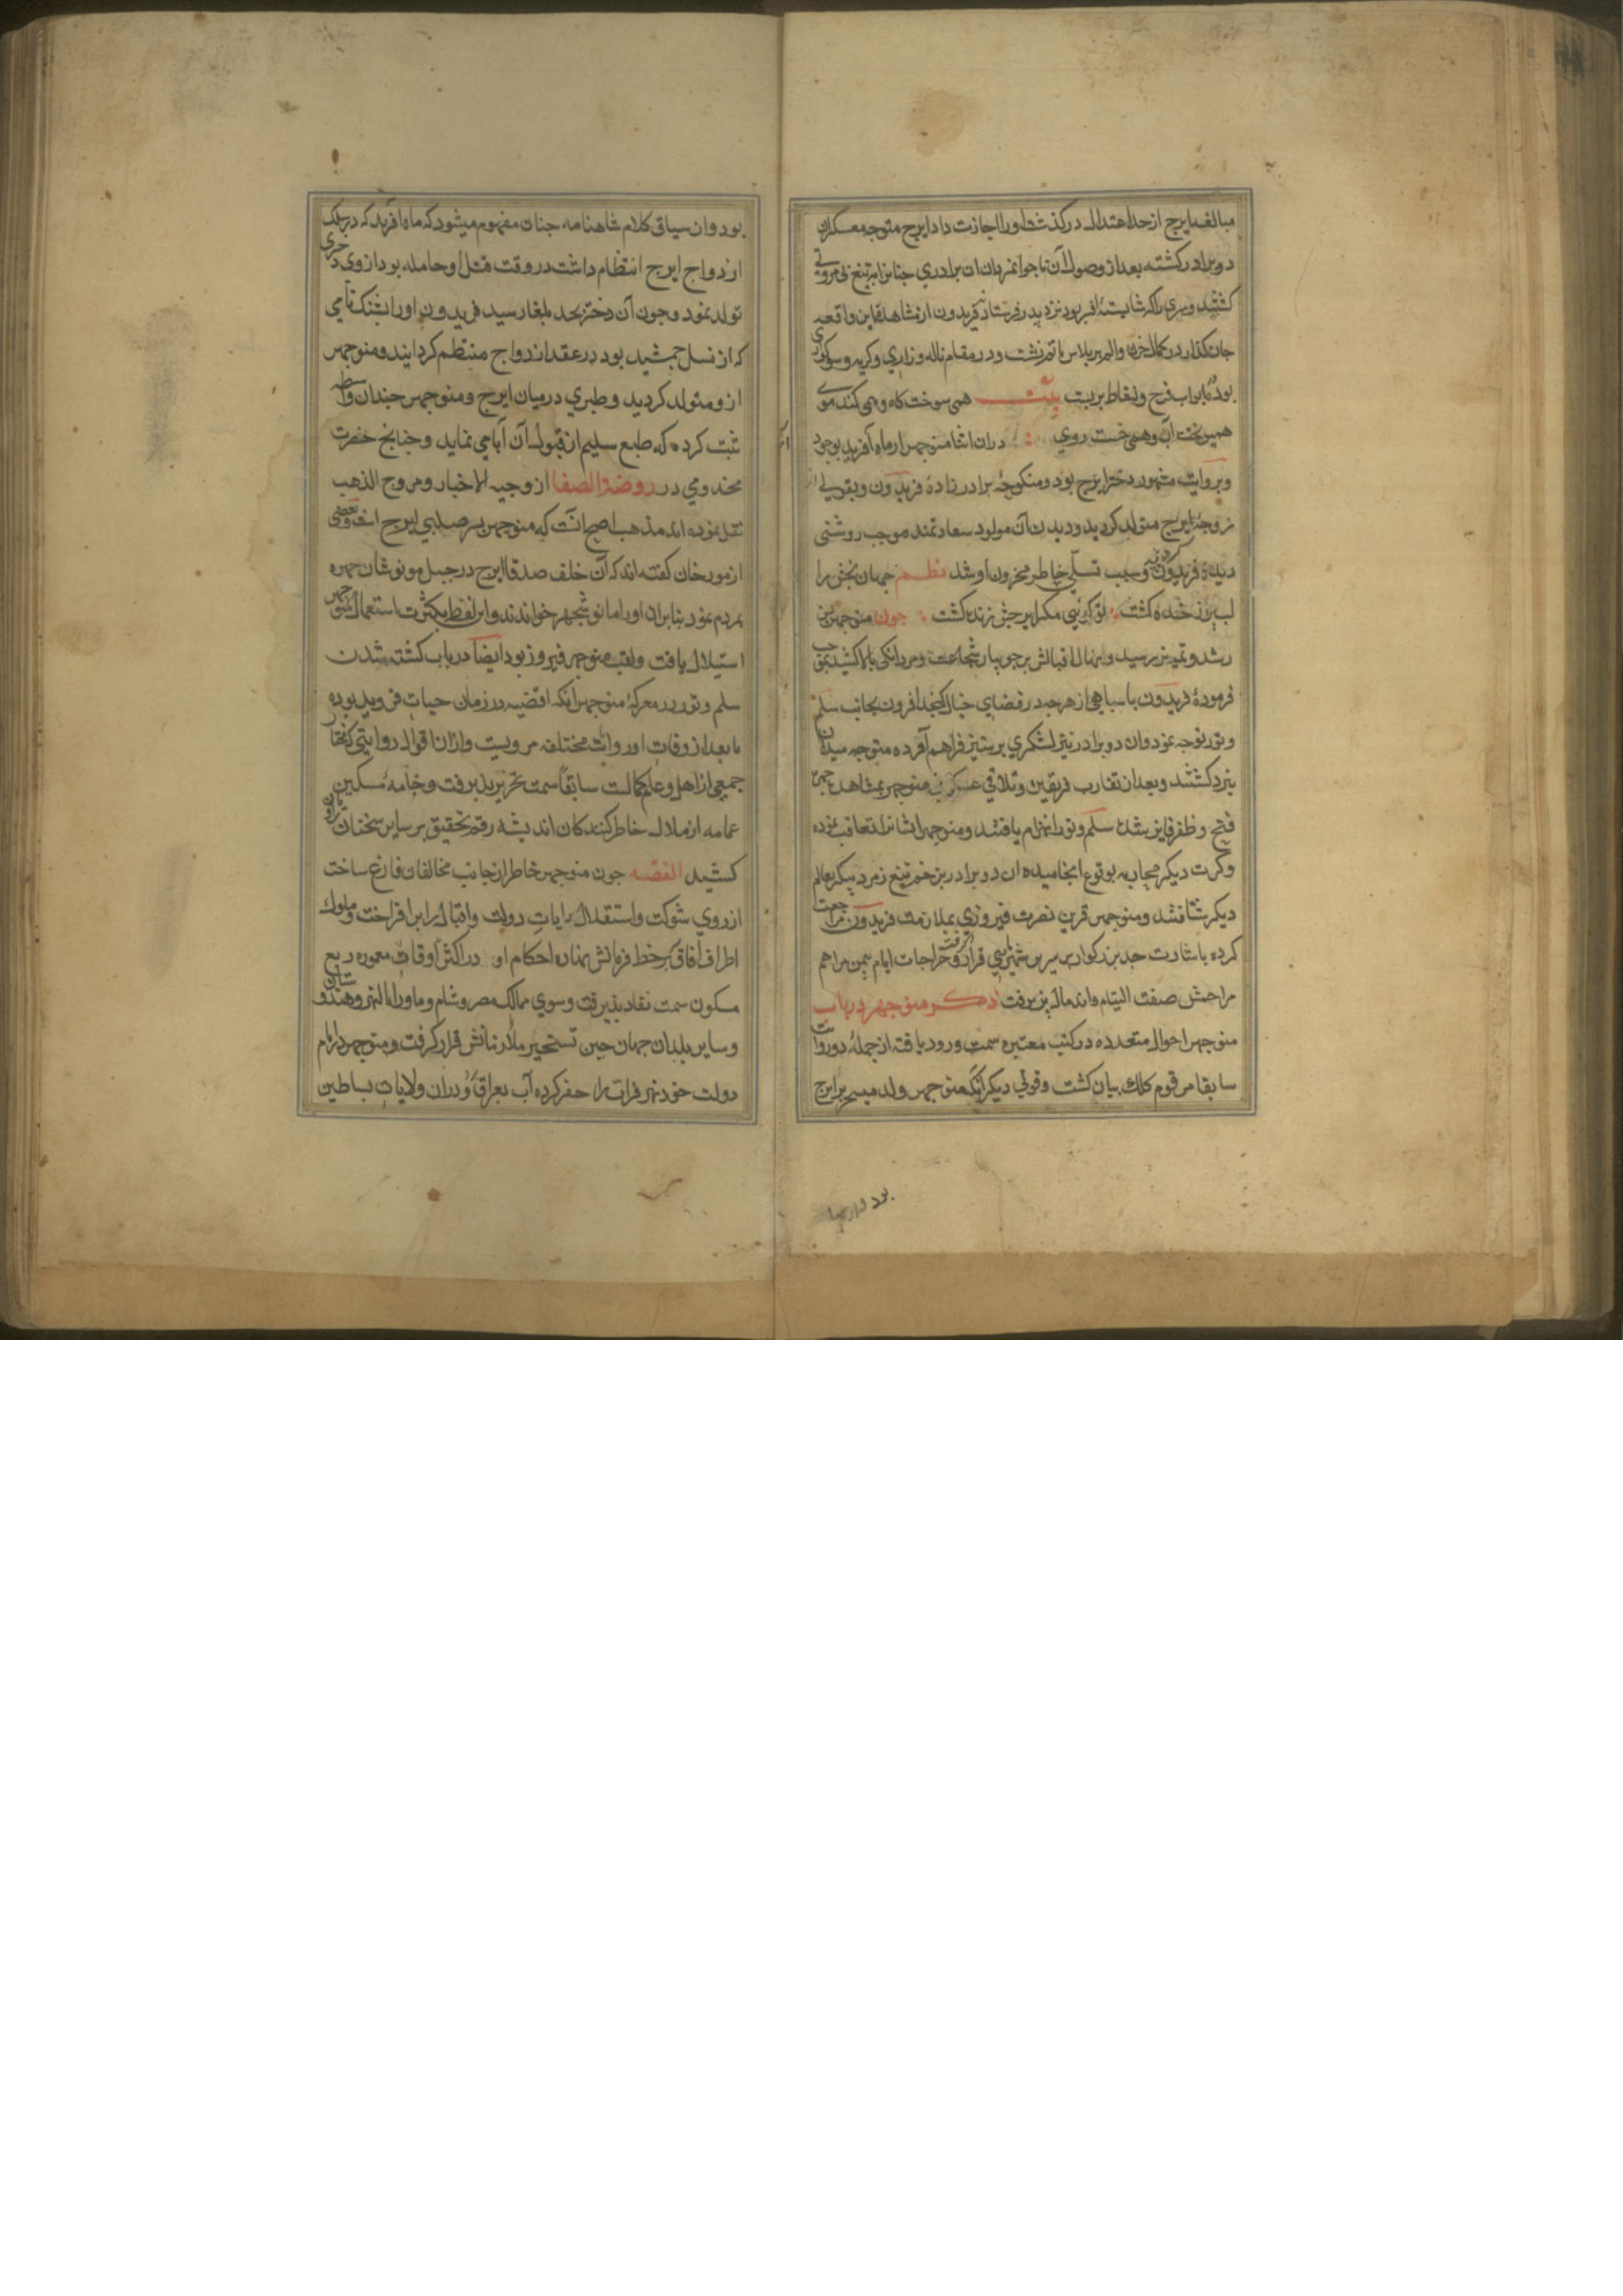 مبالغه ایرج از حد اعتدال درگذشت او را اجازت داد ایرج متوجه معسکر آن
دو برادر کشته بعد از وصول آن ناجوانمردان ان برادری جنانرا بتیغ بی مروتی
کشتند و سری را که شایستهٔ افسر بود نزد پدر فرستاد فریدون از مشاهدۀ این واقعه
جان کداز در کمال حزن والم بر پلاس ماتم نشست و در مقام ناله و زاری و کریه و سوکواری
بوده ابواب فرح و نشاط بر بست بیت همی سوخت کاه و همی کند موی
همی ریخت آب و همی خست روی دران اثنا منوجهر از ماه آفرید بوجود
و بروایت مشهور دختر ایرج بود و منکوحهٔ برادر زادهٔ فریدون و بقولی از
زوجهٔ ایرج متولد کردید و دیدن آن مولود سعادتمند موجب روشنی
دیدهٔ فریدون کردیده و سبب تسلی خاطر محزون او شد نظم جهان بخش را
لب پر از خنده کشت تو کویی مکر ایرجش زنده کشت چون منوجهر بسن
رشد و تمیز برسید و نهال اقبالش بر جویبار شجاعت و مردانکی بالا کشید بموجب
فرمودهٔ فریدون با سپاهی از هر چه در فضای خیال کنجد افزون بجانب سلم
و تور توجه نمود وان دو برادر نیز لشکری پر ستیز فراهم آورده متوجه میدان
نبرد کشتند و بعد از تقارب فریقین و تلاقی عسکرین منوجهر بمشاهده جهرهٔ
فتح و ظفر فایز شده سلم و تور انهزام یافتند و منوجهر ایشانرا تعاقب نموده
و کرت دیکر محاربه بوقوع انجامیده ان دو برادر بزخم تیغ زمرد پیکر بعالم
دیکر شتافتند و منوجهر قرین نصرت فیروزی بملازمت فریدون مراجعت
کرده باشارت جد بزرکوار بر سریر شهریاری قرار کرفت و جراحات ایام بیمن مراهم
مراحمش صفت التیام و اندمال پذیرفت ذکر منوجهر در باب
منوجهر احوال متعدده در کتب معتبره سمت ورود یافته از جمله دو روایت
سابقا مرقوم کلک بیان کشت و قولی دیکر آنکه منوجهر ولد میسحر بر ایرج
بود وارسیا
بود وان سیاق کلام شاهنامه جنان مفهوم میشود که ماه آفرید که در سلک
ازدواج ایرج انتظام داشت در وقت قتل او حامله بود از وی دختری
تولد نمود و جون آن دختر بحد بلغا رسید فریدون او را بشنک نامی
که از نسل جمشید بود در عقد ازدواج منتظم کردانید و منوجهر
ازو متولد کردید و طبری در میان ایرج و منوجهر جندان واسطه
ثبت کرده که طبع سلیم از قبول آن آبا می نماید و جنانج حضرت
مخدومی در روضة الصفا از وجیه الاخبار و مروج الذهب
نقل نموده اند مذهب اصح انست که منوجهر پسر صلبی ایرج است و بعضی
از مورخان کفته اند که آن خلف صدق ایرج در جبل مونوشان جهره
بمردم نمود بنابران او را مانوشجهر خواندند و این لفظ بکثرت استعمال منوجهر
استیلال یافت و لقب منوجهر فیروز بود ایضا در باب کشته شدن
سلم و تور در معرکهٔ منوجهر انکه اقضیه در زمان حیات فریدون بوده
یا بعد از وفات او روایت مختلفه مرویست وازان اقوال روایتی که مختار
جمعی از اهل و علم کمالست سابقا سمت تحریر پذیرفت و خامهٔ مسکین
عمامه از ملال خاطر کنندکان اندیشه رقم تحقیق بر سایر سخنان نتوان
کشید القصه جون منوجهر خاطر از جانب مخالفان فارغ ساخت
از روی شوکت و استقلال رایات دولت و اقبال را برافراخت و ملوک
اطراف آفاق سر خط فرمانش نهاده احکام او در اکثر اوقات معموره ربع
مسکون سمت نفاد پذیرفت و سوی ممالک مصر و شام و ماورا النهر و هندوستان
و سایر بلدان جهان حین تسخیر ملازمانش قرار کرفت و منوجهر در ایام
دولت خود نهر فرات را حفر کرده آب بعراق آورد و دران ولایات بساطین